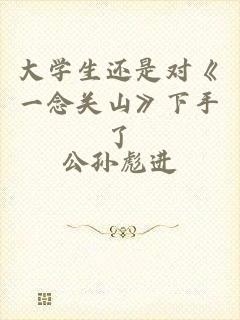 大学生还是对《
一念关山》下手
了
公孙彪进